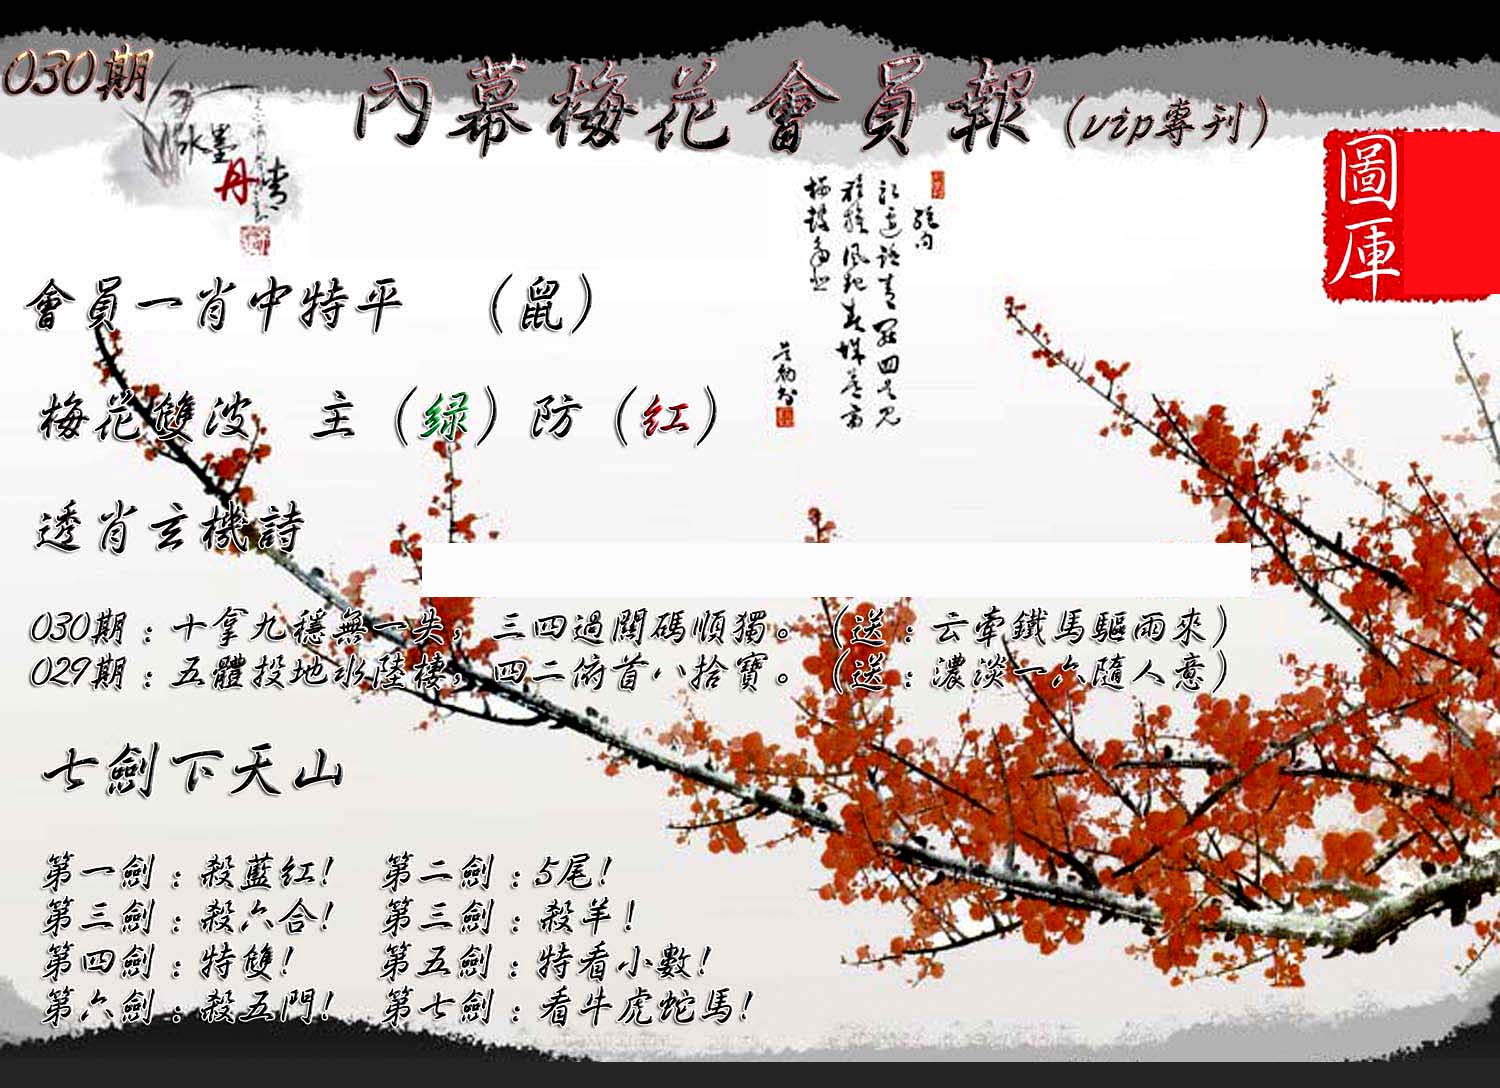 030期
內幕梅花會員報(vip專刊)
水墨
丹青
圖庫
絕句
會員一肖中特平 (鼠)
梅花雙波 主(绿)防(红)
透肖玄機詩
030期:十拿九穩無一失,三四過關碼順獨。(送:云牽鐵馬驅雨來)
029期:五體投地水陸棲,四二俯首八拾寶。(送:濃淡一六隨人意)
七劍下天山
第一劍:殺藍红! 第二劍:5尾!
第三劍:殺六合! 第三劍:殺羊!
第四劍:特雙! 第五劍:特看小數!
第六劍:殺五門! 第七劍:看牛虎蛇馬!